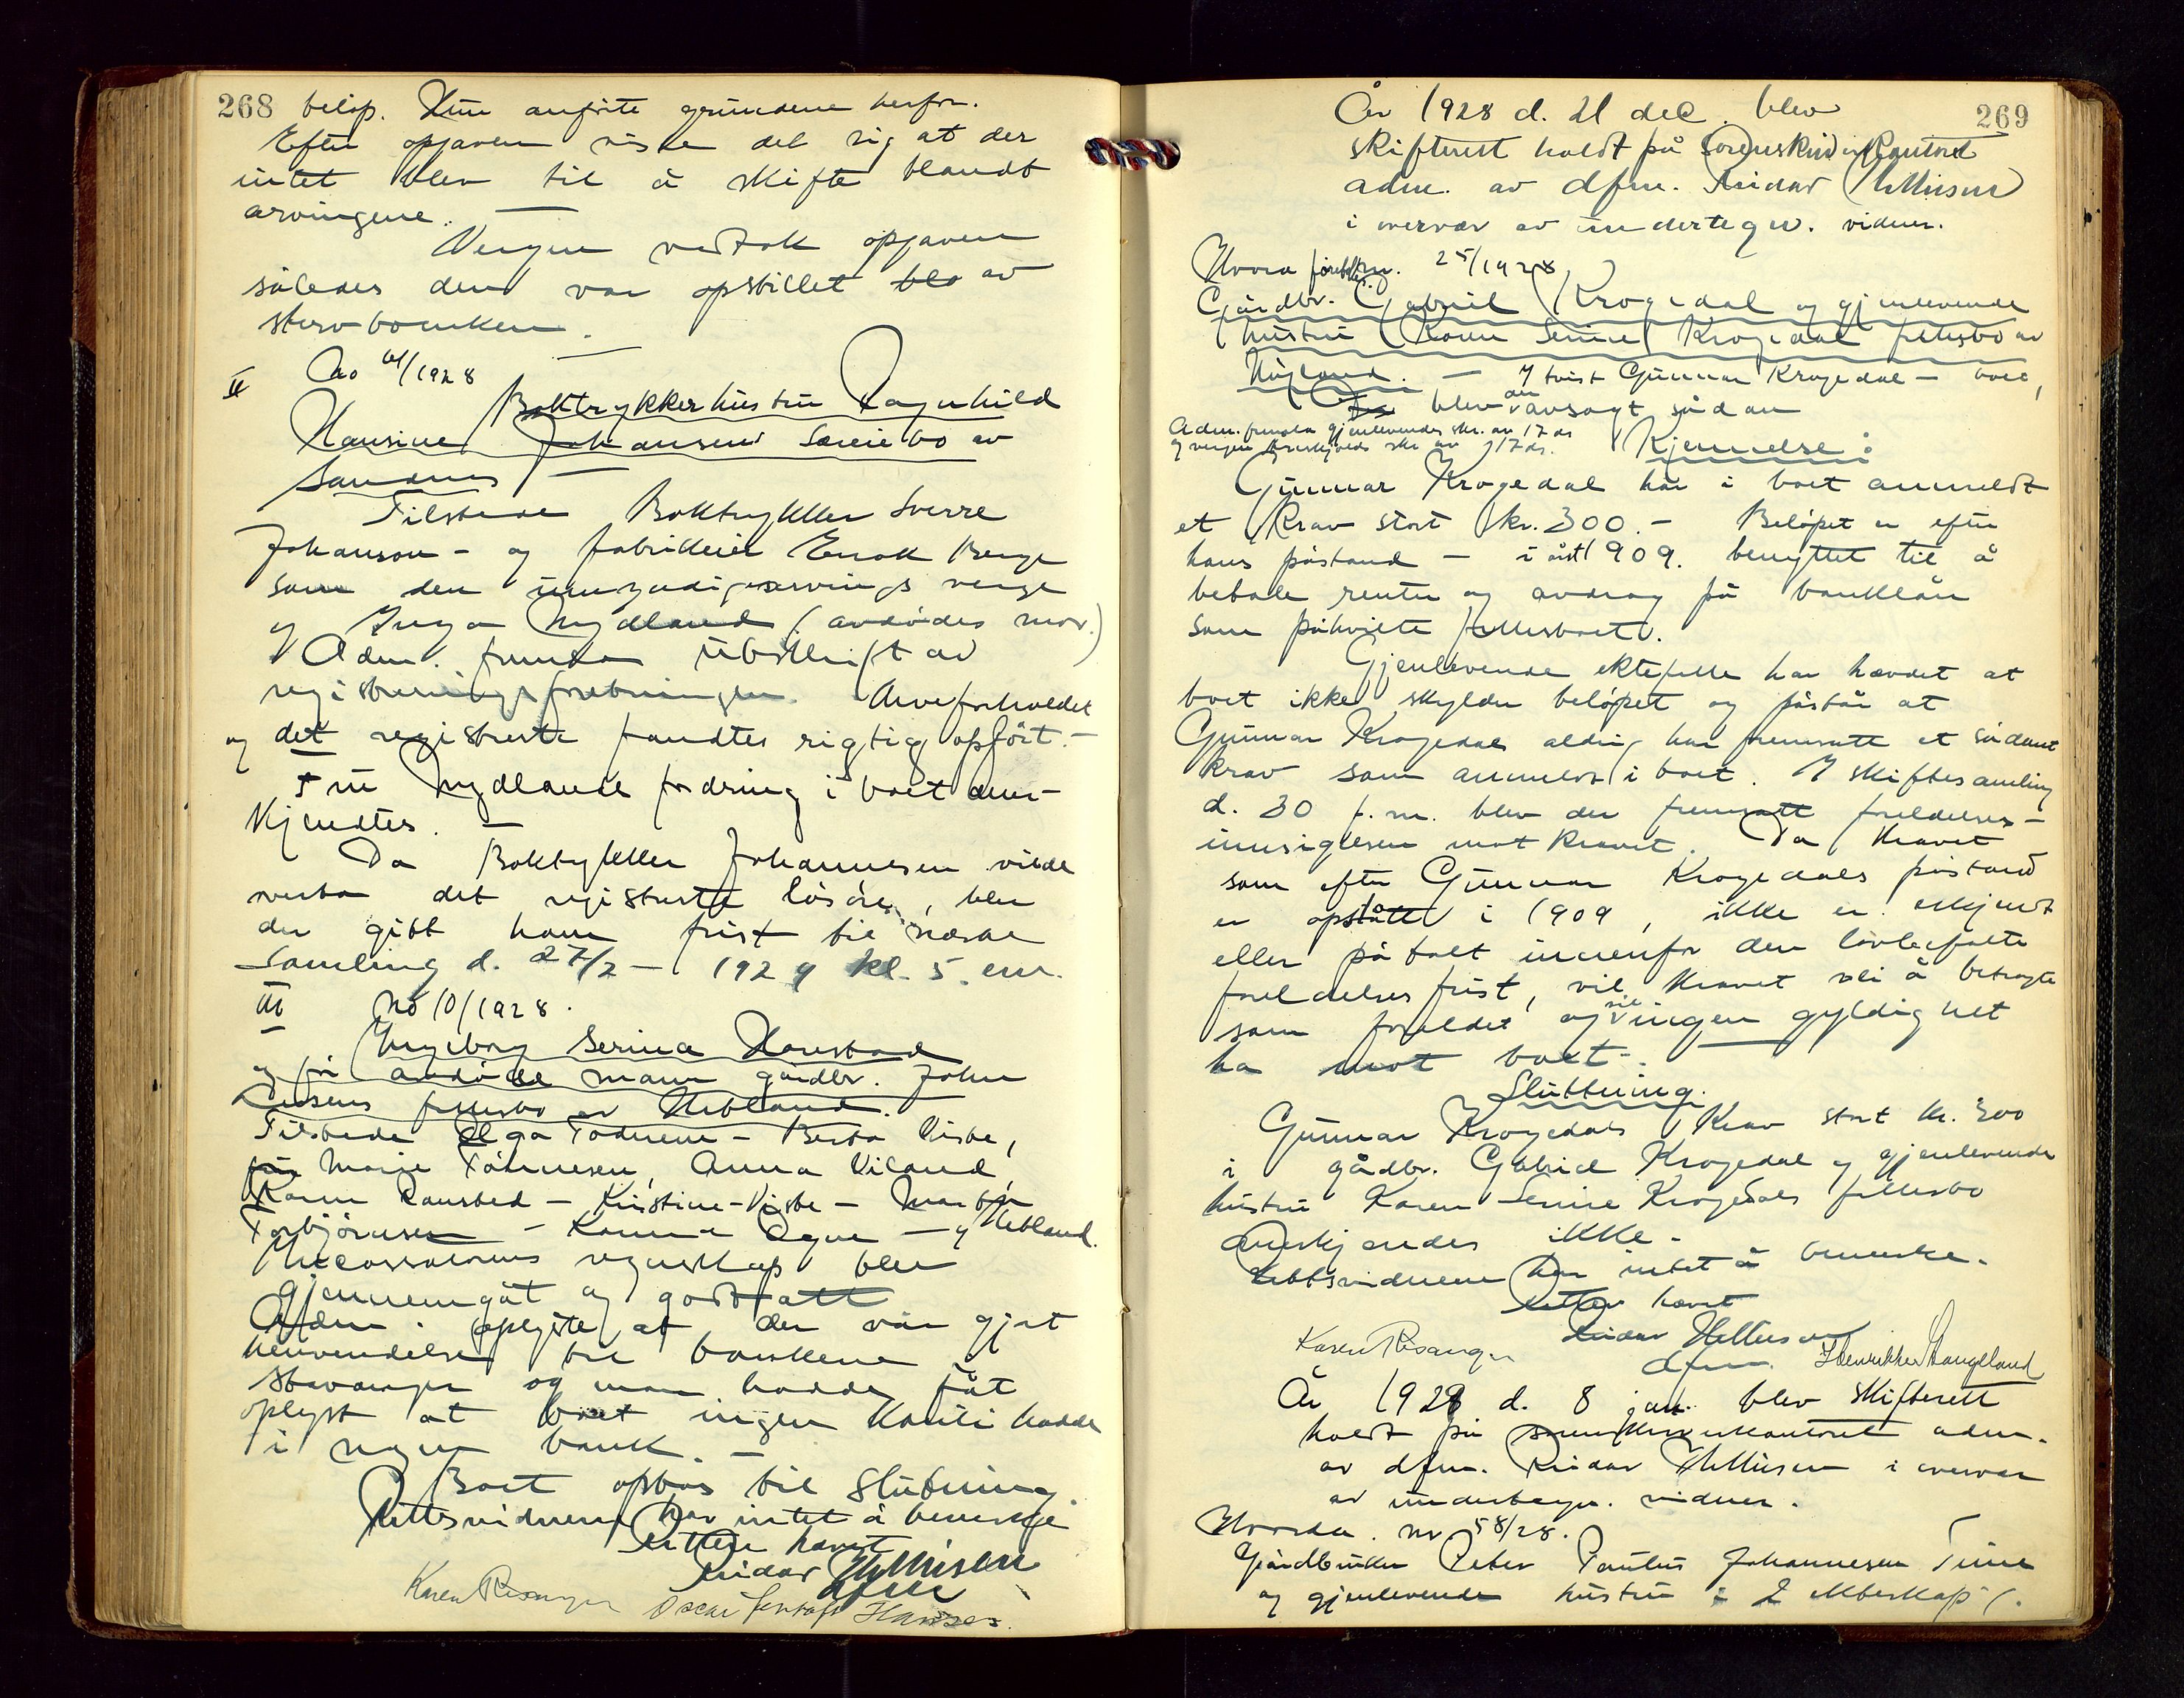 268 beløp. Hun anførte grundene herfor.
Efter opgaven viste det sig at der
intet blev til å skifte blandt
arvingene. —
Vergen vedtok opgaven
således den var opstillet av
stervboenken.
II No 61/1928
Boktrykkerhustru Ragnhild
Hansine Johansens særeiebo av
Sandnes —
Tilstede Boktrykker Sverre
Johanson - og fabrikkeier Enok Berge
som den umyndige arvings verge
og Inga Nydland (avdødes mor.)
Adm. fremla utskrift av
registreringsforretningen. Arveforholdet
og det registrerte fandtes rigtig opført. -
Fru Nydlands fordring i boet aner-
kjendtes. —
Da Boktrykker Johannesen vilde
det registrerte løsøre, blev
der gitt ham frist til næste
Samling d. 27/2 - 1929 kl. 5 em.
III No 10/1928.
Ingeborg Serina Hanstad
og før avdøde mann gårdbr. John
fellesbo av Utbland.
Tilstede Olga - Berta Viste,
Marie Tønnesen, Anna Viland,
Karen Ramsted - Kristine Viste - Martin
Torbjørnsen - - og Utbland.
Incassatorens regnskap blev
gjennemgåt og godtatt
Adm. oplyste at der var gjort
henvendelse til bankene i
Stavanger og man hadde fåt
oplyst at boet ingen konti hadde
i nogen bank. —
Boet optas til slutning.
Rettsvidnene har intet å bemerke
Retten hævet
Reidar Hellisen
dfm
Karen Risanger Oscar Gustaf Hansen.
269
År 1928 d. 21 dec. blev
skifterett holdt på Sorenskriverkontoret
adm. av dfm. Reidar Hellisen
i overvær av undertegn. vidner.
Hvorda foretokes 25/1928
Gårdbr. Gabriel Krogedal og gjenlevende
hustru Karen Serine Krogedal fellesbo av
Høyland. — I tvist Gunnar Krogedal - boet,
blev avsagt sådan
Adm. fremla gjenlevendes skr. av 17 ds
og vergen skr av 17 ds. Kjennelse:
Gunnar Krogedal har i boet anmeldt
et krav stort kr. 300.- Beløpet er efter
hans påstand - i året 1909. benyttet til å
betale renter og avdrag på banklån
som påhvilte fellesboet.
Gjenlevende ektefelle har hævdet at
boet ikke skylder beløpet og påstår at
Gunnar Krogedal aldrig har fremsatt et sådant
krav som anmeldt i boet. I skiftesamling
d. 30 f. m. blev der fremsatt foreldelses-
innsigelsen mot kravet. Da kravet
som efter Gunnar Krogedals påstand
er opstått i 1909, ikke er erkjendt
eller påtalt innenfor den lovbefalte
foreldelsesfrist, vil kravet bli å betragte
som foreldet og vil ingen gyldighet
ha mot boet -.
Slutning.
Gunnar Krogedals krav stort kr. 300
i gårdbr. Gabriel Krogedal og gjenlevende
hustru Karen Serine Krogedals fellesbo
anerkjendes ikke.
Rettsvidnene har intet å bemerke.
Retten hævet
Reidar Hellisen
dfm.
Karen Risanger Henrikke Haugeland
År 1929 d. 8 jan. blev skifterett
holdt på sorenskriverkontoret adm.
av dfm. Reidar Hellisen i overvær
av undertegn. vidner.
Hvorda. nr 58/28.
Gårdbruker Peter Paulus Johannesen Time
og gjenlevende hustru i 2 ekteskap